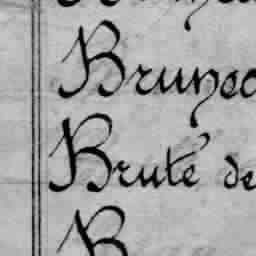 Bruneo
Bruté de
B